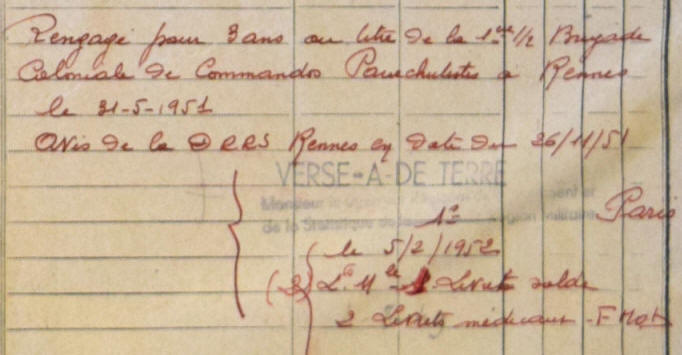 Rengagé pour 3 ans au titre de la 1ère 1/2 Brigade
Coloniale de Commandos Parachutistes à Rennes
le 31-5-1951
Avis de la DRRS Rennes en date du 26/11/51
VERSE-A-DE TERRE
Monsieur le
de la Statistique de la Région Militaire
1e Paris
le 5/2/1952
Livrets solde
2 Livrets médicaux - F Mob